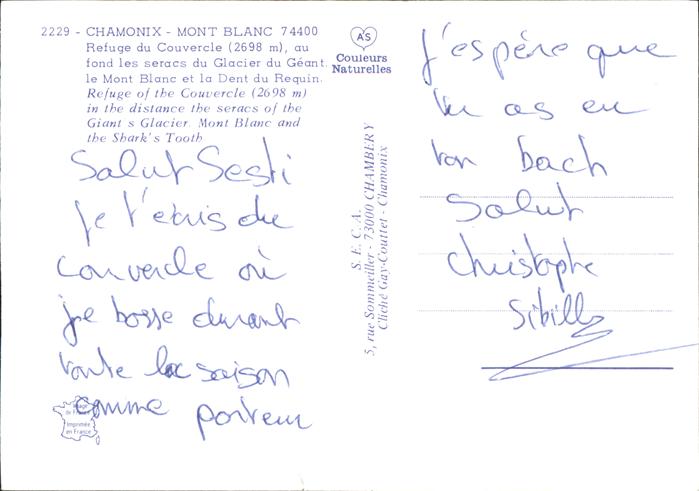 2229 - CHAMONIX - MONT BLANC 74400
Refuge du Couvercle (2698 m), au
fond les seracs du Glacier du Géant,
le Mont Blanc et la Dent du Requin.
Refuge of the Couvercle (2698 m)
in the distance the seracs of the
Giant s Glacier. Mont Blanc and
the Shark's Tooth
Salut Sesti
je t'écris du
couvercle où
je bosse durant
toute la saison
comme porteur
Image
de France
Imprimée
en France
AS
Couleurs
Naturelles
S. E. C. A.
5, rue Sommeiller - 73000 CHAMBERY
Cliché Gay-Couttet - Chamonix
J'espère que
tu as eu
ton bach
Salut
Christophe
Sibille